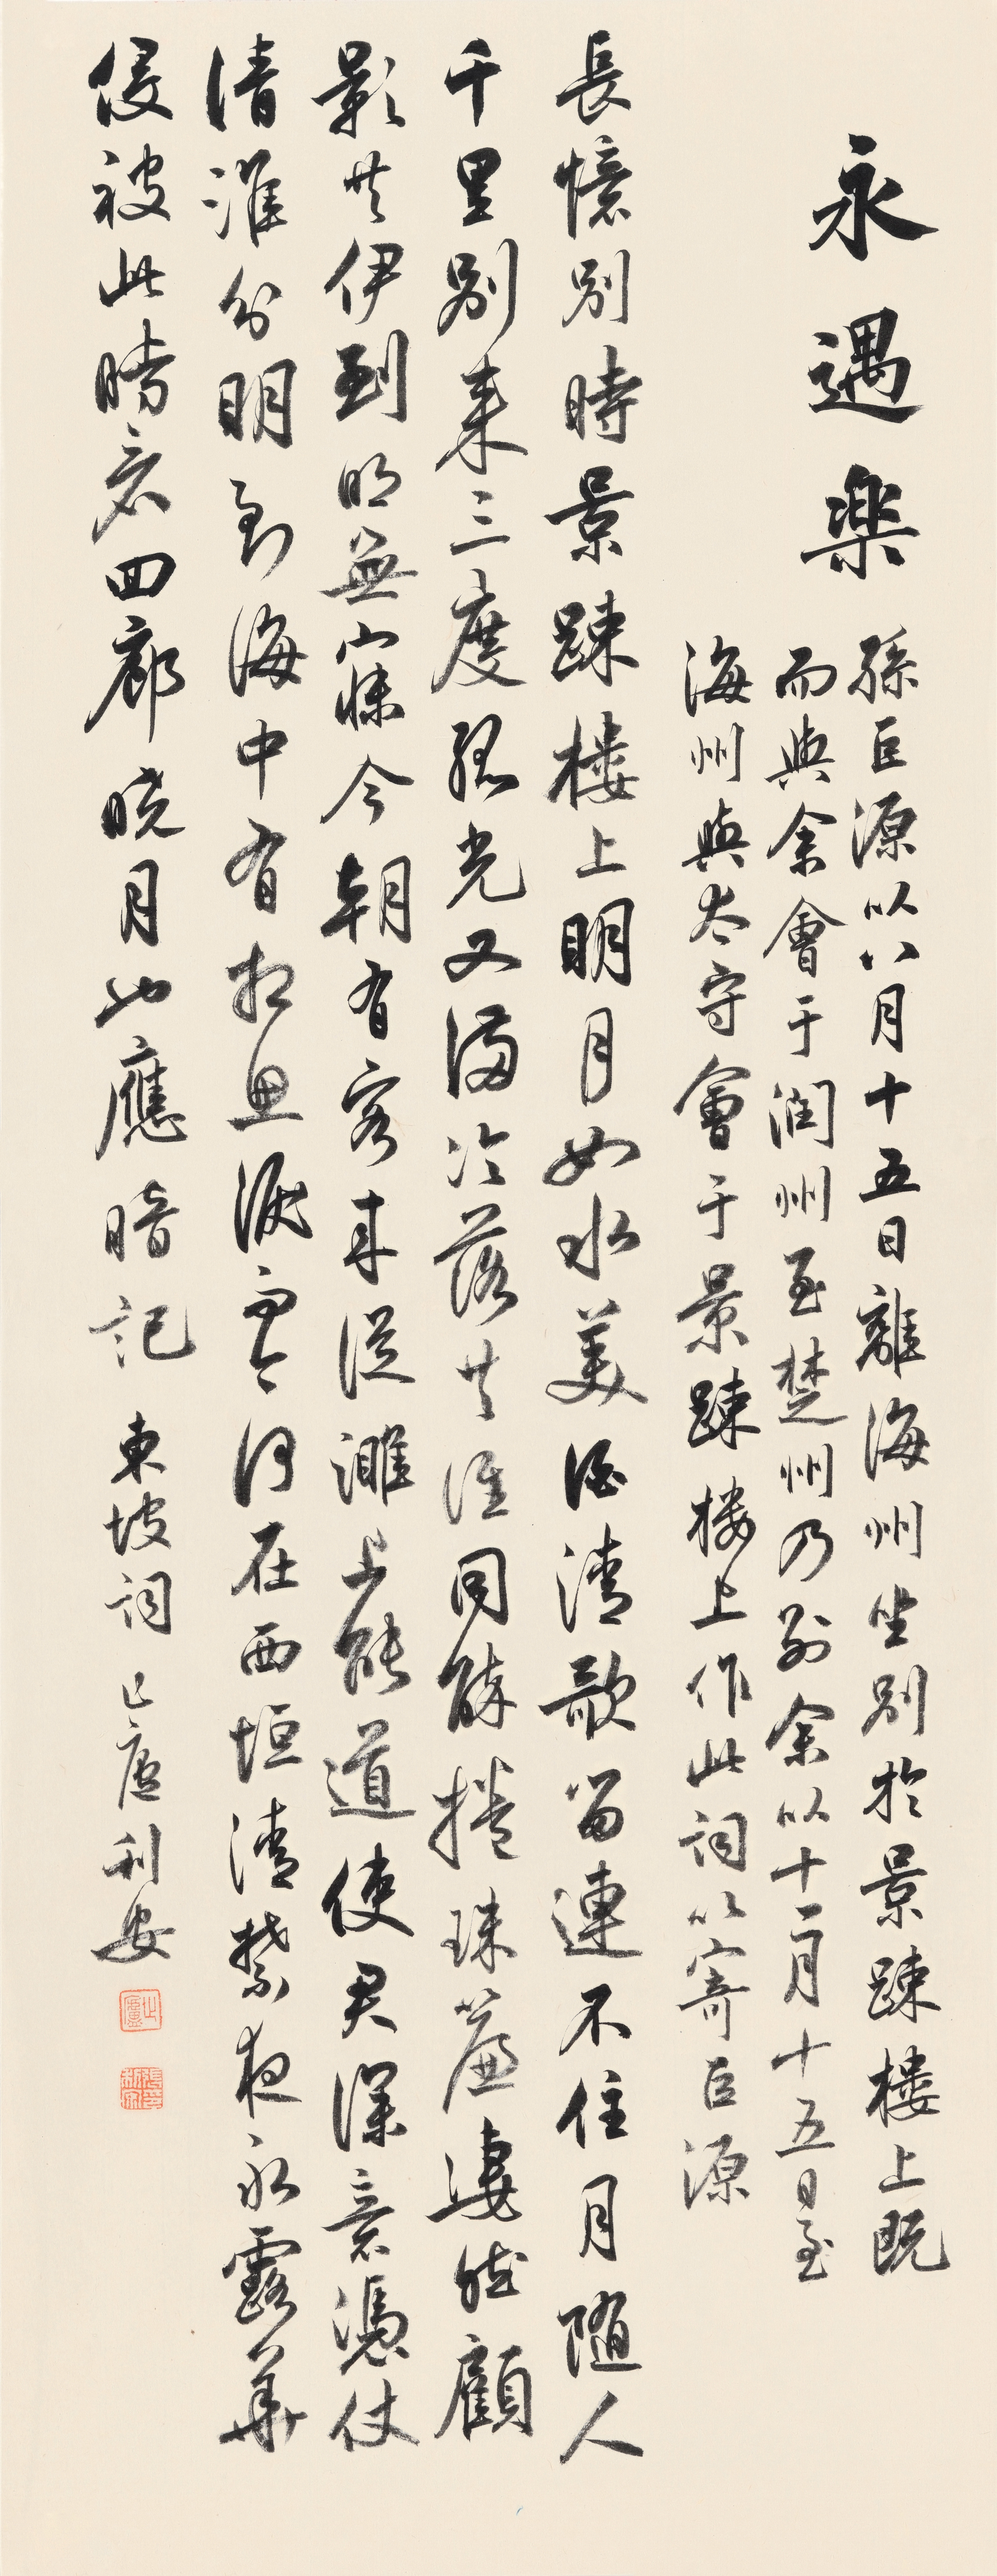 永遇樂
孫巨源以八月十五日離海州坐別於景踈樓上既
而與余會于潤州至楚州乃別余以十一月十五日至
海州與太守會于景踈樓上作此詞以寄巨源
長憶別時景踈樓上明月如水美酒清歌留連不住月隨人
千里別來三度孤光又滿冷落共誰同醉捲珠簾淒然顧
影共伊到明無寐今朝有客來從濉上能道使君深意憑仗
清淮分明到海中有相思淚而今何在西垣清禁夜永露華
侵被此時看回廊曉月也應暗記 東坡詞 止廬利安
止廬